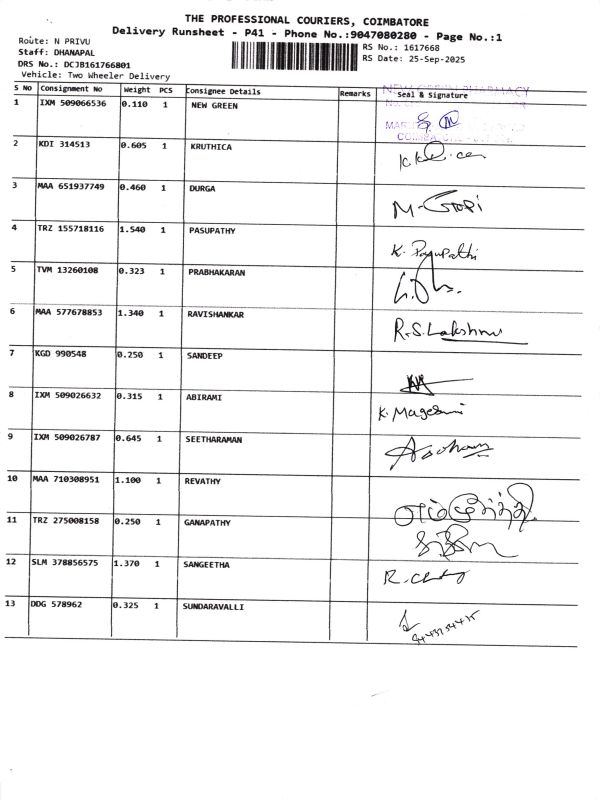 THE PROFESSIONAL COURIERS, COIMBATORE
Delivery Runsheet - P41 - Phone No.:9047080280 - Page No.:1
Route: N PRIVU
RS No.: 1617668
Staff: DHANAPAL
RS Date: 25-Sep-2025
DRS No.: DCJB161766801
Vehicle: Two Wheeler Delivery
S No Consignment No Weight PCS Consignee Details Remarks Seal & Signature
1 IXM 509066536 0.110 1 NEW GREEN
2 KDI 314513 0.605 1 KRUTHICA
3 MAA 651937749 0.460 1 DURGA M-Gopi
4 TRZ 155718116 1.540 1 PASUPATHY K. Pasupathi
5 TVM 13260108 0.323 1 PRABHAKARAN
6 MAA 577678853 1.340 1 RAVISHANKAR R.S.Lakshmi
7 KGD 990548 0.250 1 SANDEEP
8 IXM 509026632 0.315 1 ABIRAMI K. Mageswari
9 IXM 509026787 0.645 1 SEETHARAMAN
10 MAA 710308951 1.100 1 REVATHY
11 TRZ 275008158 0.250 1 GANAPATHY
12 SLM 378856575 1.370 1 SANGEETHA
13 DDG 578962 0.325 1 SUNDARAVALLI